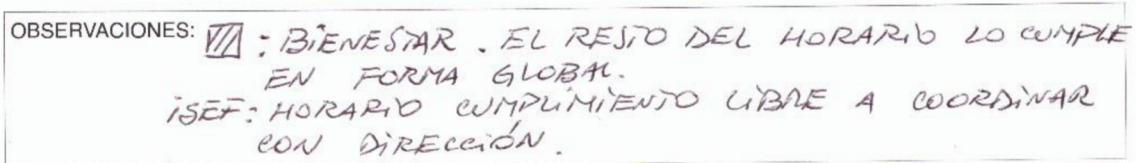 OBSERVACIONES: : BIENESTAR. EL RESTO DEL HORARIO LO CUMPLE
EN FORMA GLOBAL.
ISEF: HORARIO CUMPLIMIENTO LIBRE A COORDINAR
CON DIRECCIÓN.